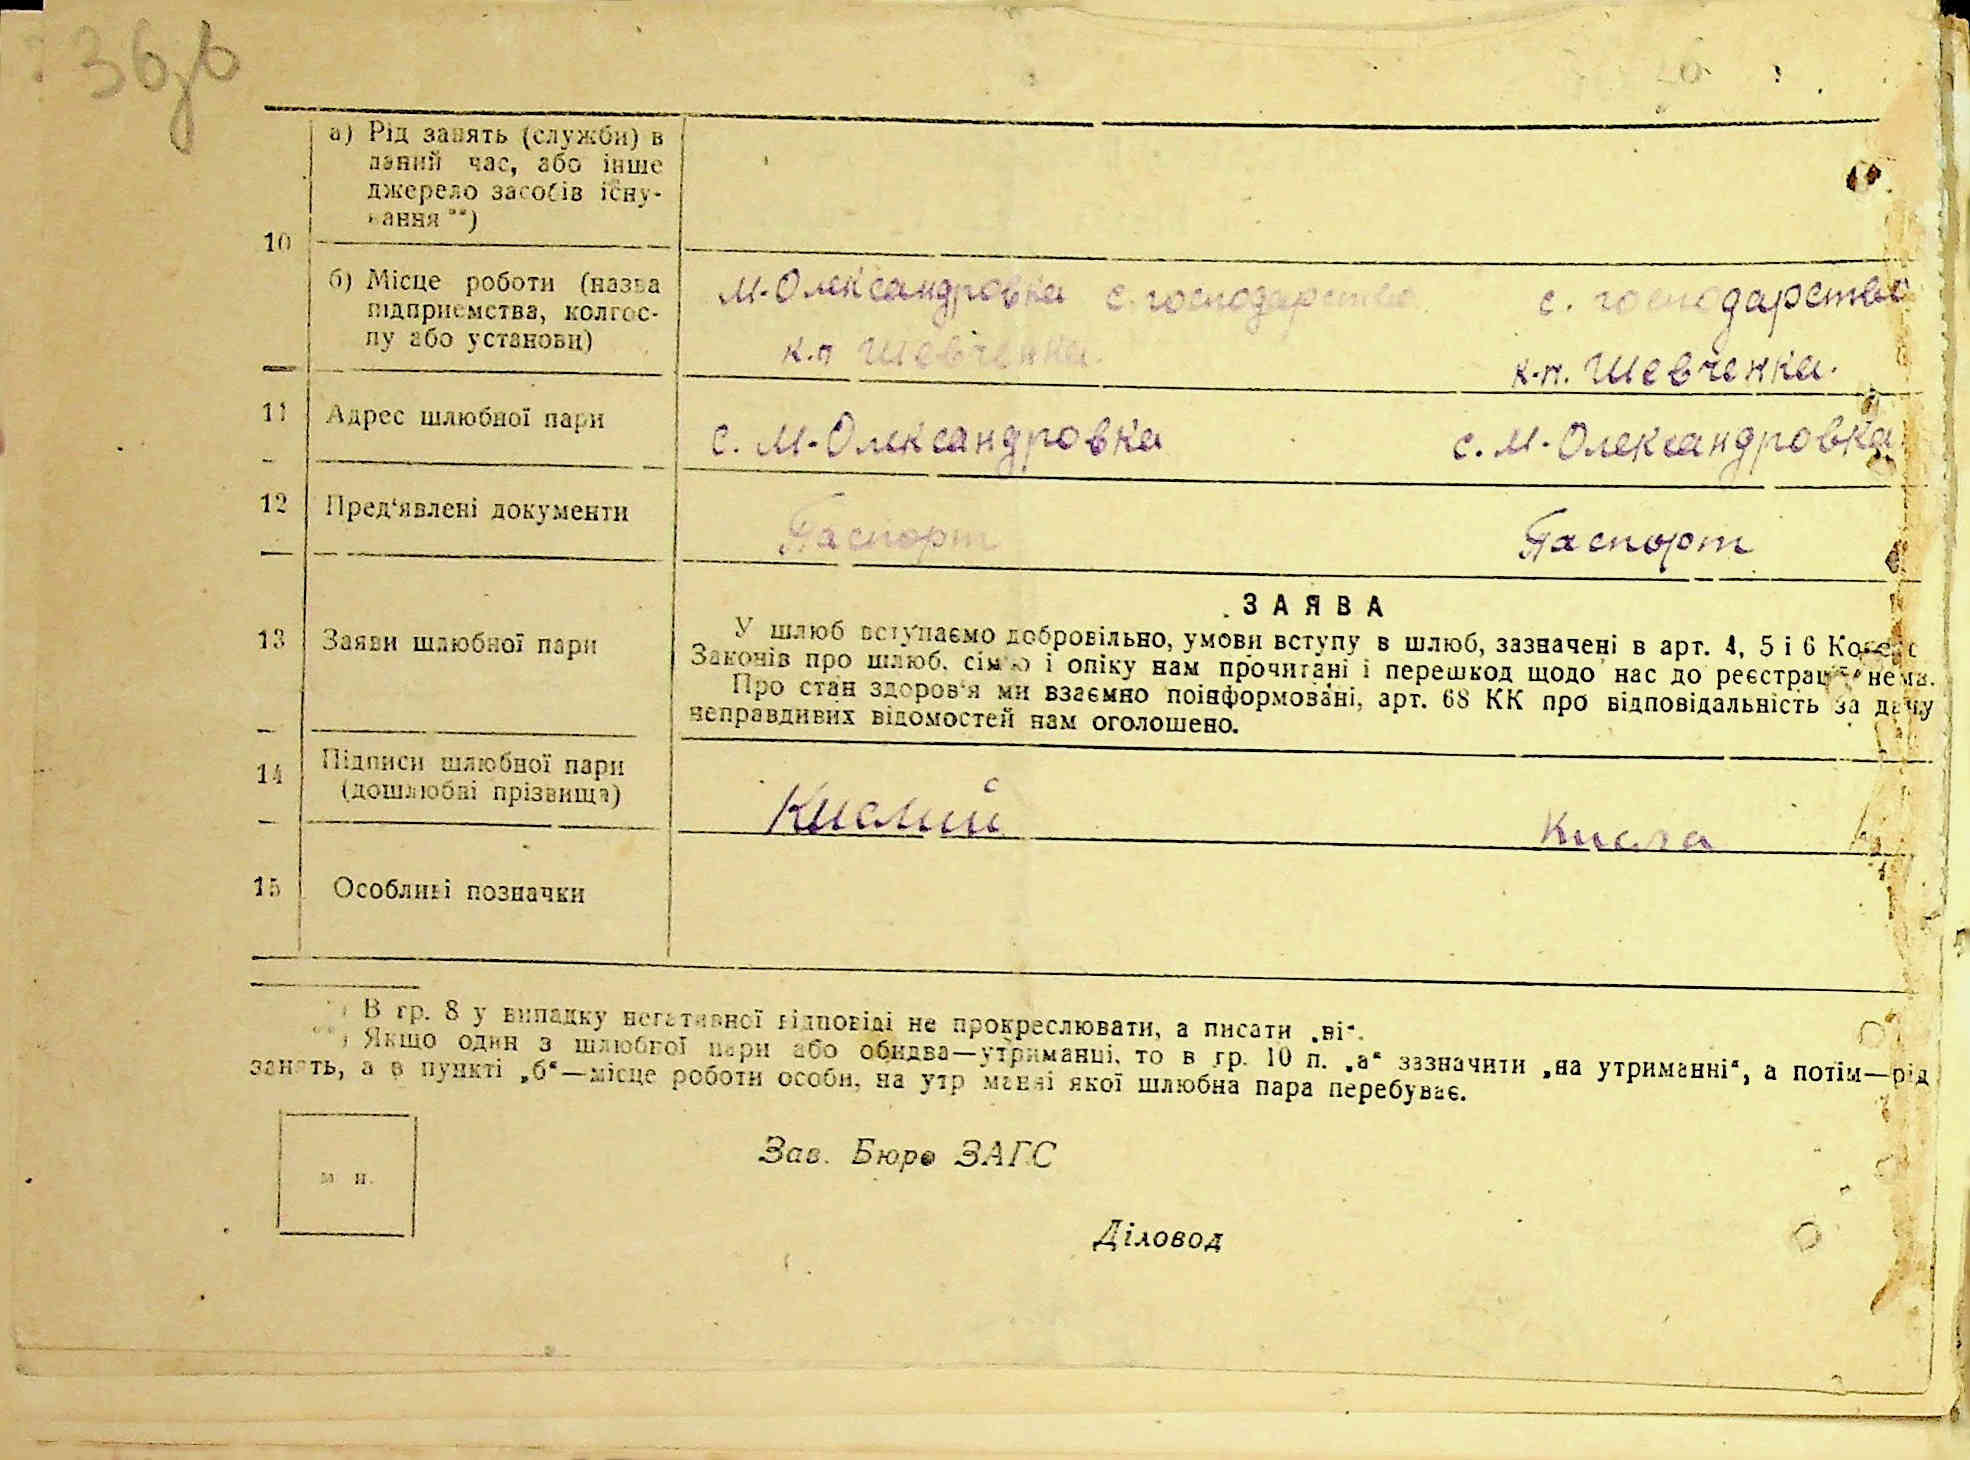 36
10
а) Рід занять (служби) в
даний час, або інше
джерело засобів існу-
вання **)
б) Місце роботи (назва
підприємства, колгос-
пу або установи)
М-Олександровка с. господарство
к.п Шевченка.
с. господарство
к-п. Шевченка.
11 Адрес шлюбної пари
с. М-Олександровка
с. М-Олександровка
12 Пред‘явлені документи
Паспорт
Паспорт
13 Заяви шлюбної пари
ЗАЯВА
У шлюб вступаємо добровільно, умови вступу в шлюб, зазначені в арт. 4, 5 і 6 Кодекс
Законів про шлюб, сім‘ю і опіку нам прочитані і перешкод щодо нас до реєстрації нема.
Про стан здоров‘я ми взаємно поінформовані, арт. 68 КК про відповідальність за дачу
неправдивих відомостей нам оголошено.
14 Підписи шлюбної пари
(дошлюбні прізвища)
Кислий
Кисла
15 Особливі позначки
*) В гр. 8 у випадку негативної відповіді не прокреслювати, а писати „ні“.
**) Якщо один з шлюбної пари або обидва—утриманці, то в гр. 10 п. „а“ зазначити „на утриманні“, а потім—рід
занять, а в пункті „б“—місце роботи особи, на утриманні якої шлюбна пара перебуває.
м п.
Зав. Бюро ЗАГС
Діловод